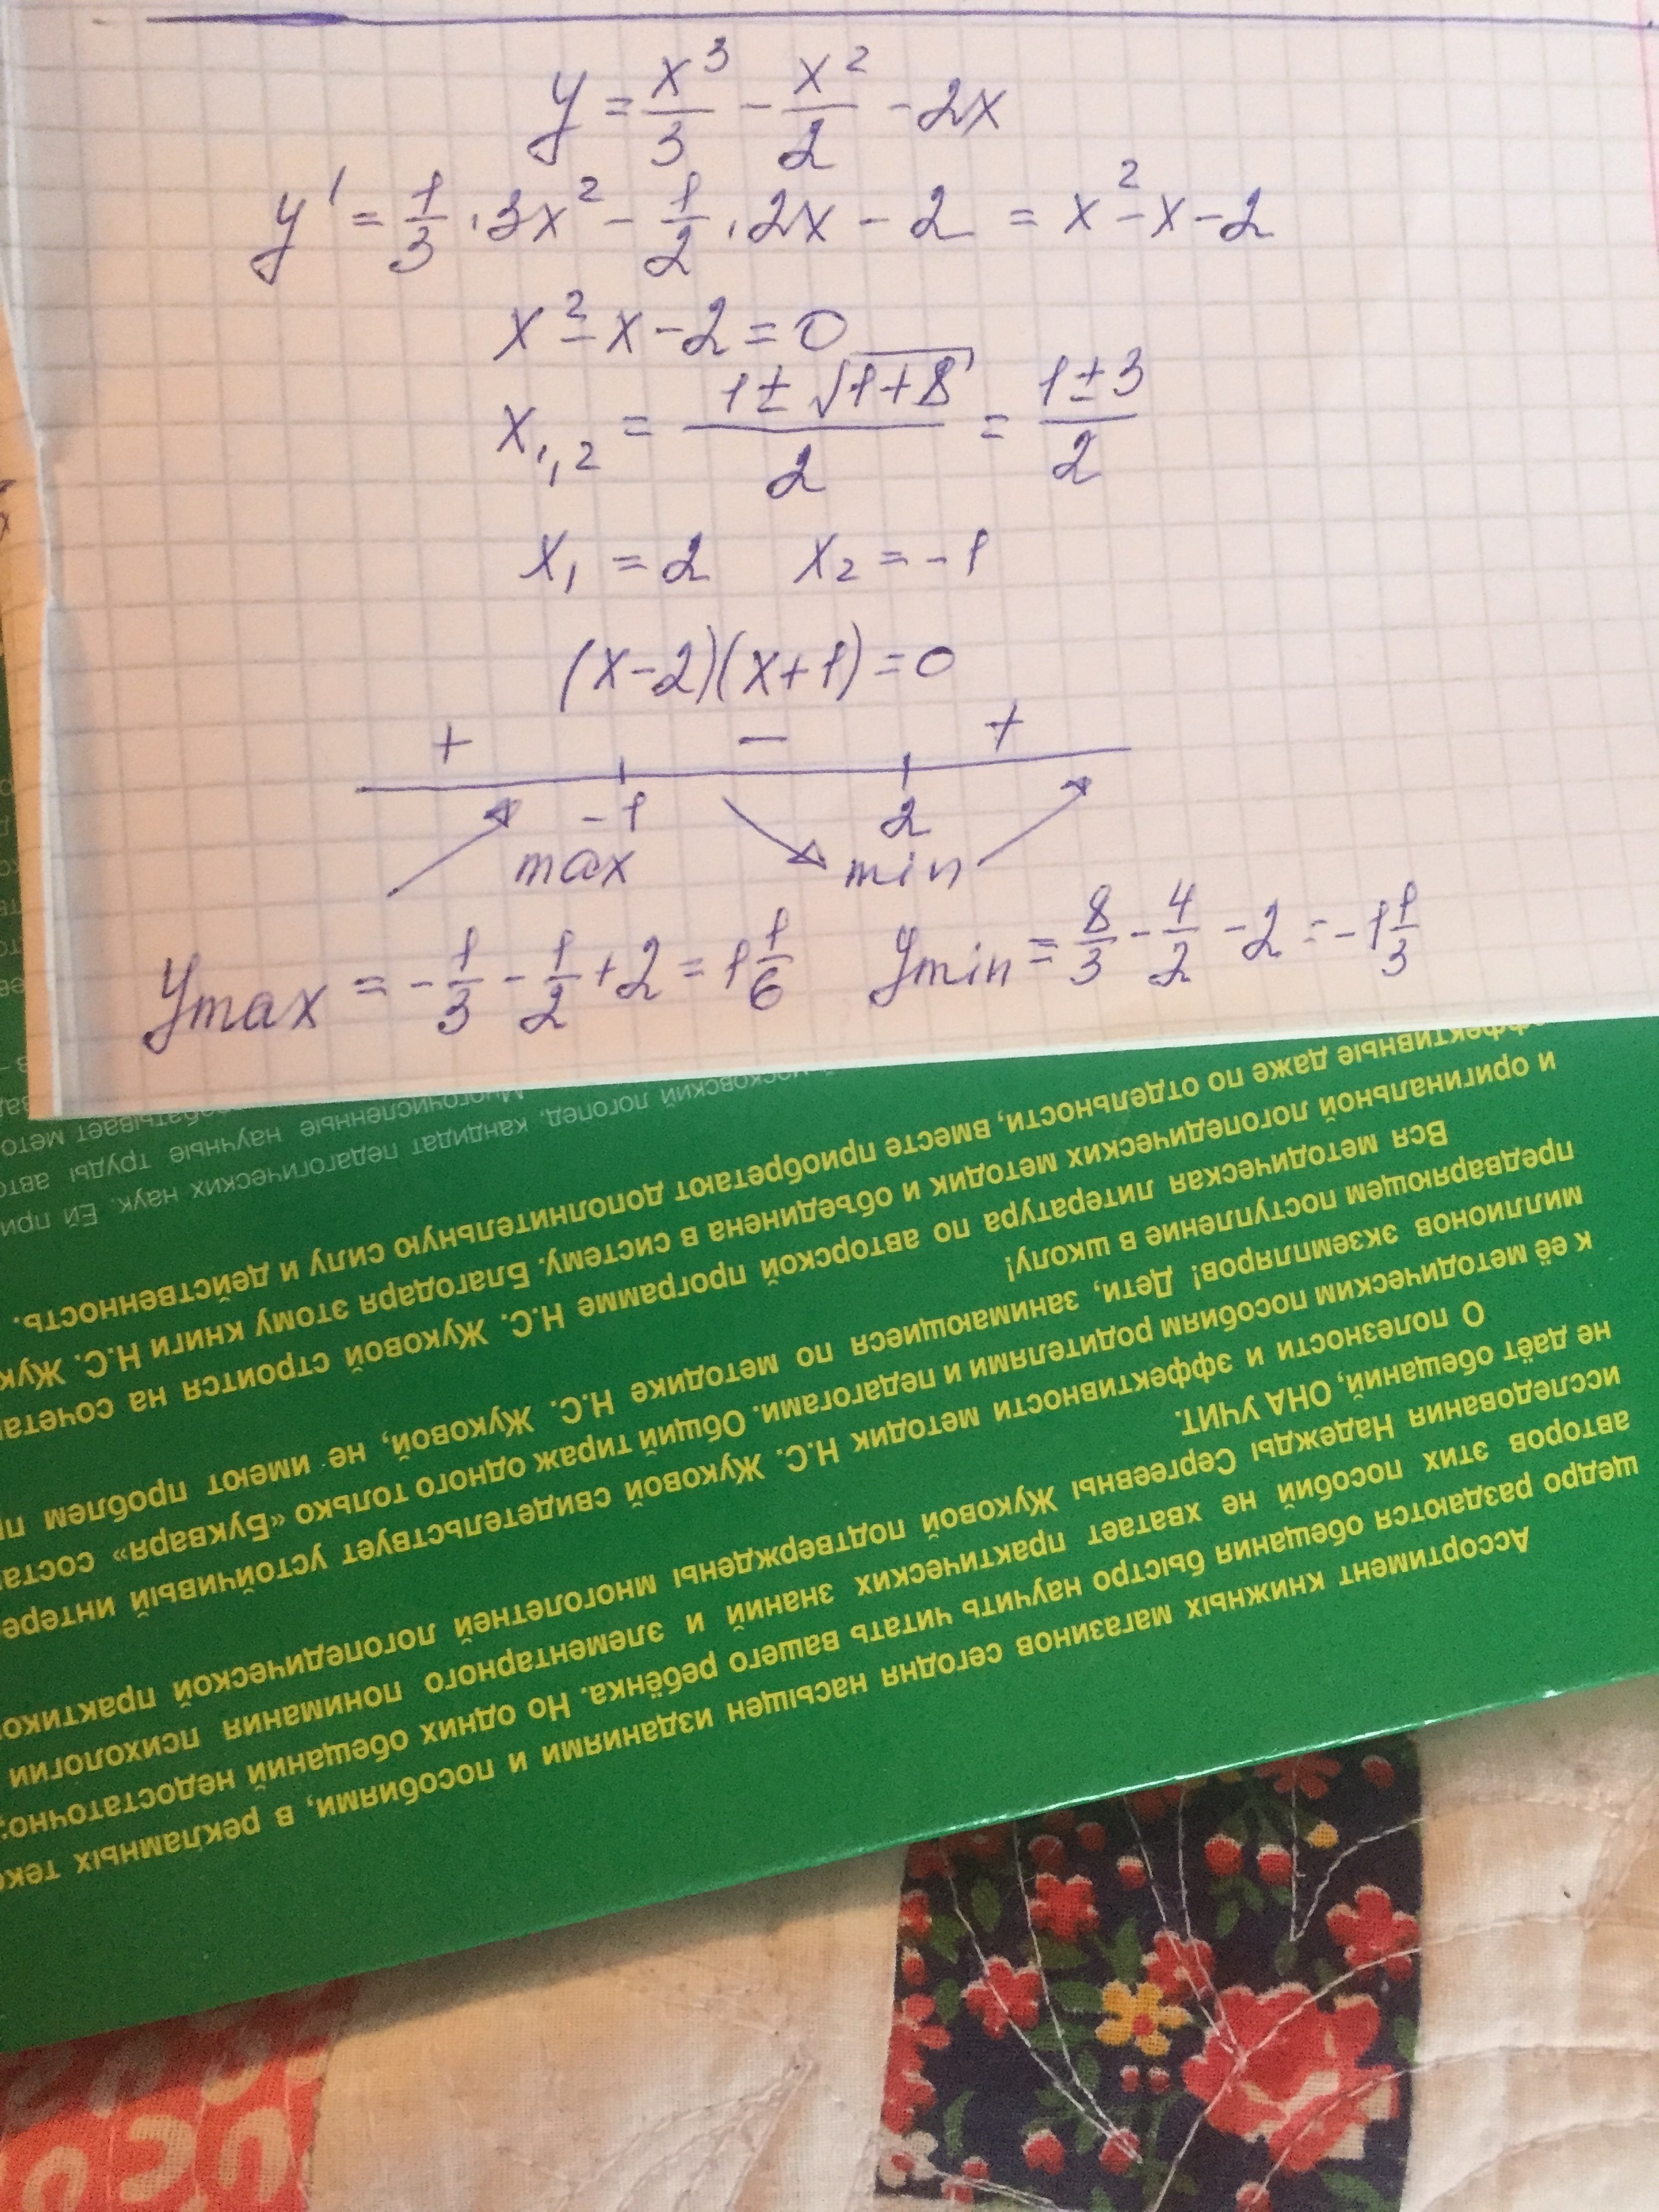 y = x³/3 - x²/2 - 2x
y' = 1/3 · 3x² - 1/2 · 2x - 2 = x² - x - 2
x² - x - 2 = 0
x₁,₂ = (1 ± √(1+8))/2 = (1 ± 3)/2
x₁ = 2 x₂ = -1
(x-2)(x+1) = 0
+ - +
-1 2
max min
ymax = -1/3 - 1/2 + 2 = 1 1/6 ymin = 8/3 - 4/2 - 2 = -1 1/3
Ассортимент книжных магазинов сегодня насыщен изданиями и пособиями, в рекламных
щедро раздаются обещания быстро научить читать вашего ребёнка. Но одних обещаний недостаточно:
авторов этих пособий не хватает практических знаний и элементарного понимания психологии
исследования Надежды Сергеевны Жуковой подтверждены многолетней логопедической
не даёт обещаний, ОНА УЧИТ.
О полезности и эффективности методик Н.С. Жуковой свидетельствует устойчивый
к её методическим пособиям родителями и педагогами. Общий тираж одного только «Букваря»
миллионов экземпляров! Дети, занимающиеся по методике Н.С. Жуковой, не имеют проблем
предваряющем поступление в школу!
Вся методическая литература по авторской программе Н.С. Жуковой строится на
и оригинальной логопедических методик и объединена в систему. Благодаря этому книги Н.С.
даже по отдельности, вместе приобретают дополнительную силу и действенность.
логопед, кандидат педагогических наук. Ей
Многочисленные научные труды